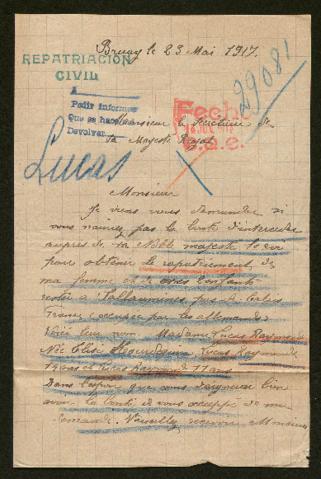 Bruay le 23 Mai 1917.
REPATRIACIÓN
CIVIL
29081
A
Pedir informes
Que se hace
Devolver
Fecho
Monsieur le Secrétaire de
Sa Majesté
Lucas
Monsieur
Je viens vous demander si
vous n'auriez pas la bonté d'intercéder
auprès de sa Noble majesté le roi
pour obtenir le rapatriement de
ma femme et de mes enfants
restés à Sallaumines pas de Calais
France (occupée par les allemands)
Voici leur nom Madame Lucas Raymond
Née Elise Lucas Raymonde
ans et Lucas Raymond 11 ans
Dans l'espoir que vous daignerez bien
avoir la bonté de vous occuper de ma
demande Veuillez recevoir Monsieur